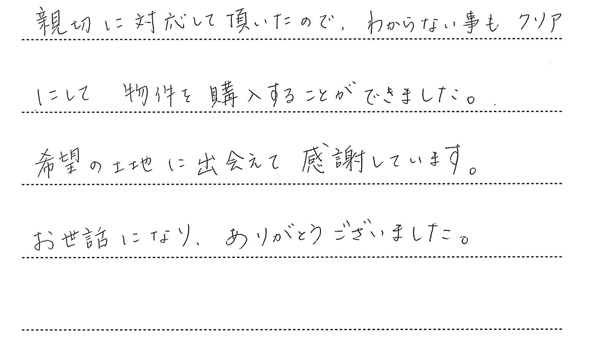 親切に対応して頂いたので、わからない事も クリア
にして 物件を購入することができました。
希望の土地に出会えて感謝しています。
お世話になり、ありがとうございました。